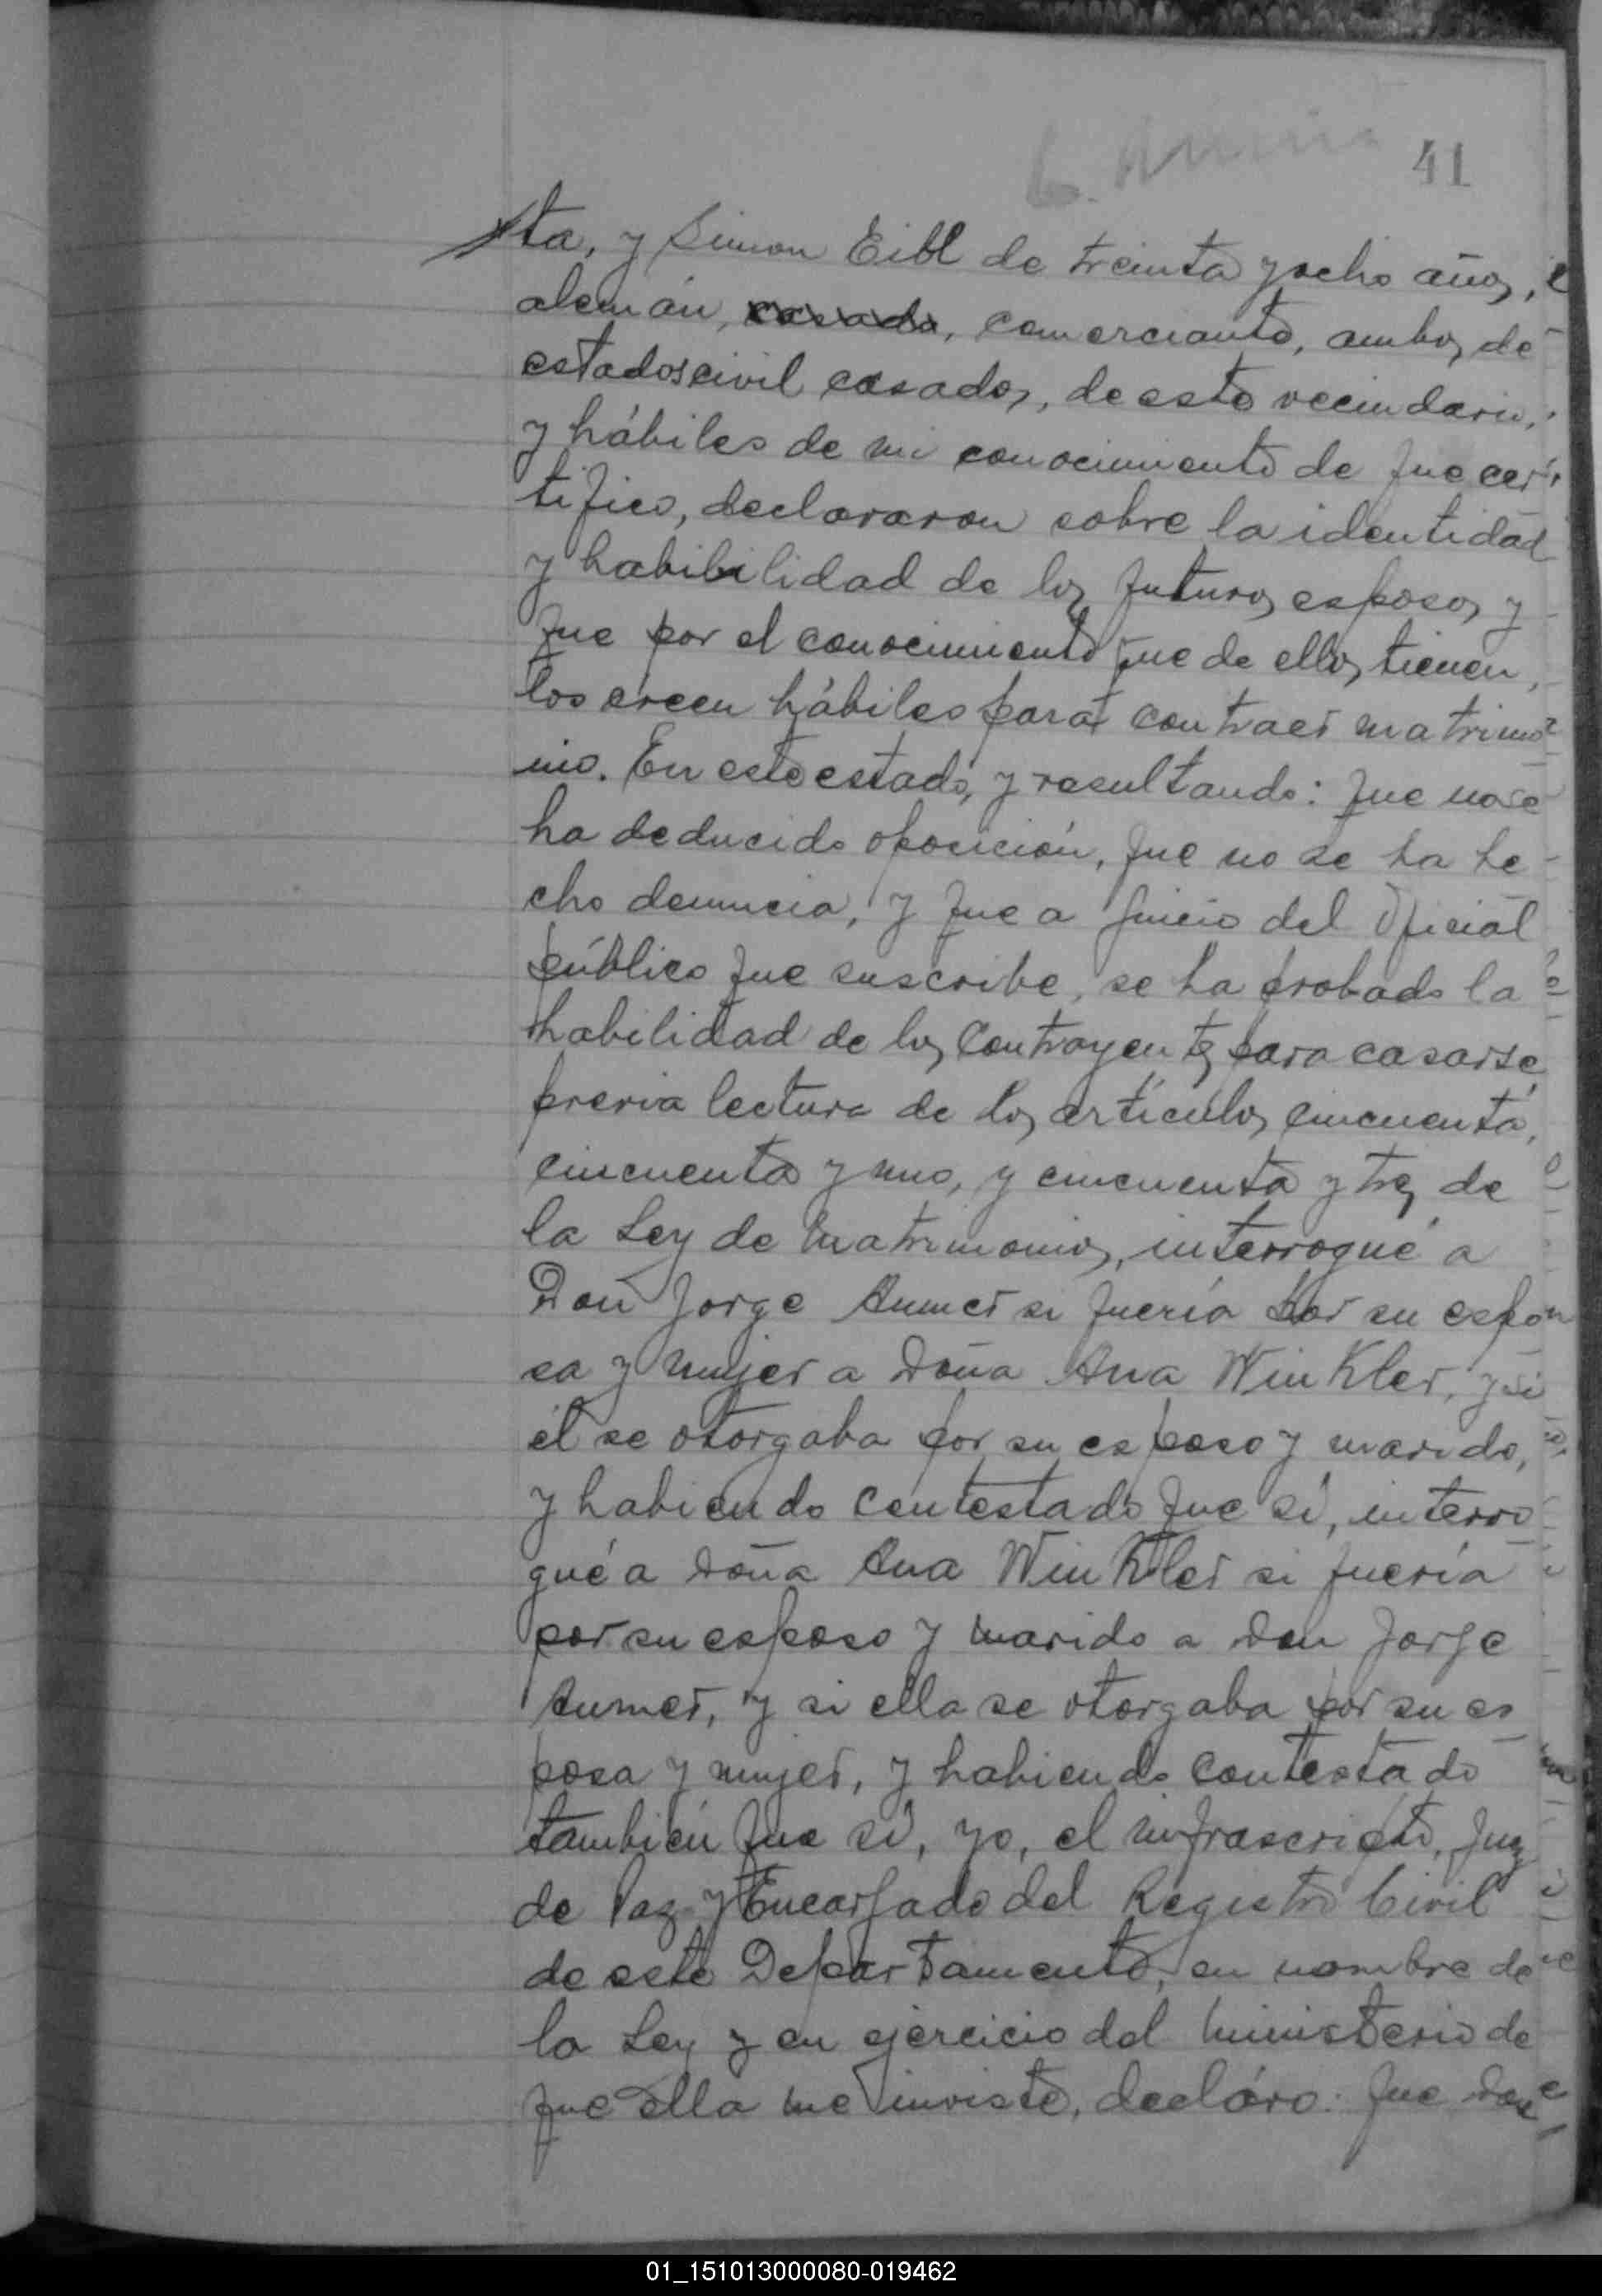 41
ta, y Simon Eibl de treinta y ocho años,
alemán, casado, comerciante, ambos de
estados civil casados, de este vecindario,
y hábiles de mi conocimiento de que cer
tifico, declararon sobre la identidad
y habibilidad de los futuros esposos y
que por el conocimiento que de ellos tienen,
los creen hábiles para contraer matrimo
nio. En este estado, y resultando: que no se
ha deducido oposición, que no se ha he
cho denuncia, y que a juicio del Oficial
público que suscribe, se ha probado la
habilidad de los contrayentes para casarse,
previa lectura de los artículos cincuenta,
cincuenta y uno, y cincuenta y tres de
la Ley de Matrimonios, interrogué a
Don Jorge Aumer si quería por su espo
sa y mujer a Doña Ana Winkler, y si
él se otorgaba por su esposo y marido,
y habiendo contestado que sí, interro
gué a Doña Ana Winkler si quería
por su esposo y marido a Don Jorge
Aumer, y si ella se otorgaba por su es
posa y mujer, y habiendo contestado
también que sí, yo, el infrascripto, Juez
de Paz y Encargado del Registro Civil
de este Departamento, en nombre de
la Ley y en ejercicio del Ministerio de
que ella me inviste, decláro: que Don
01_151013000080-019462